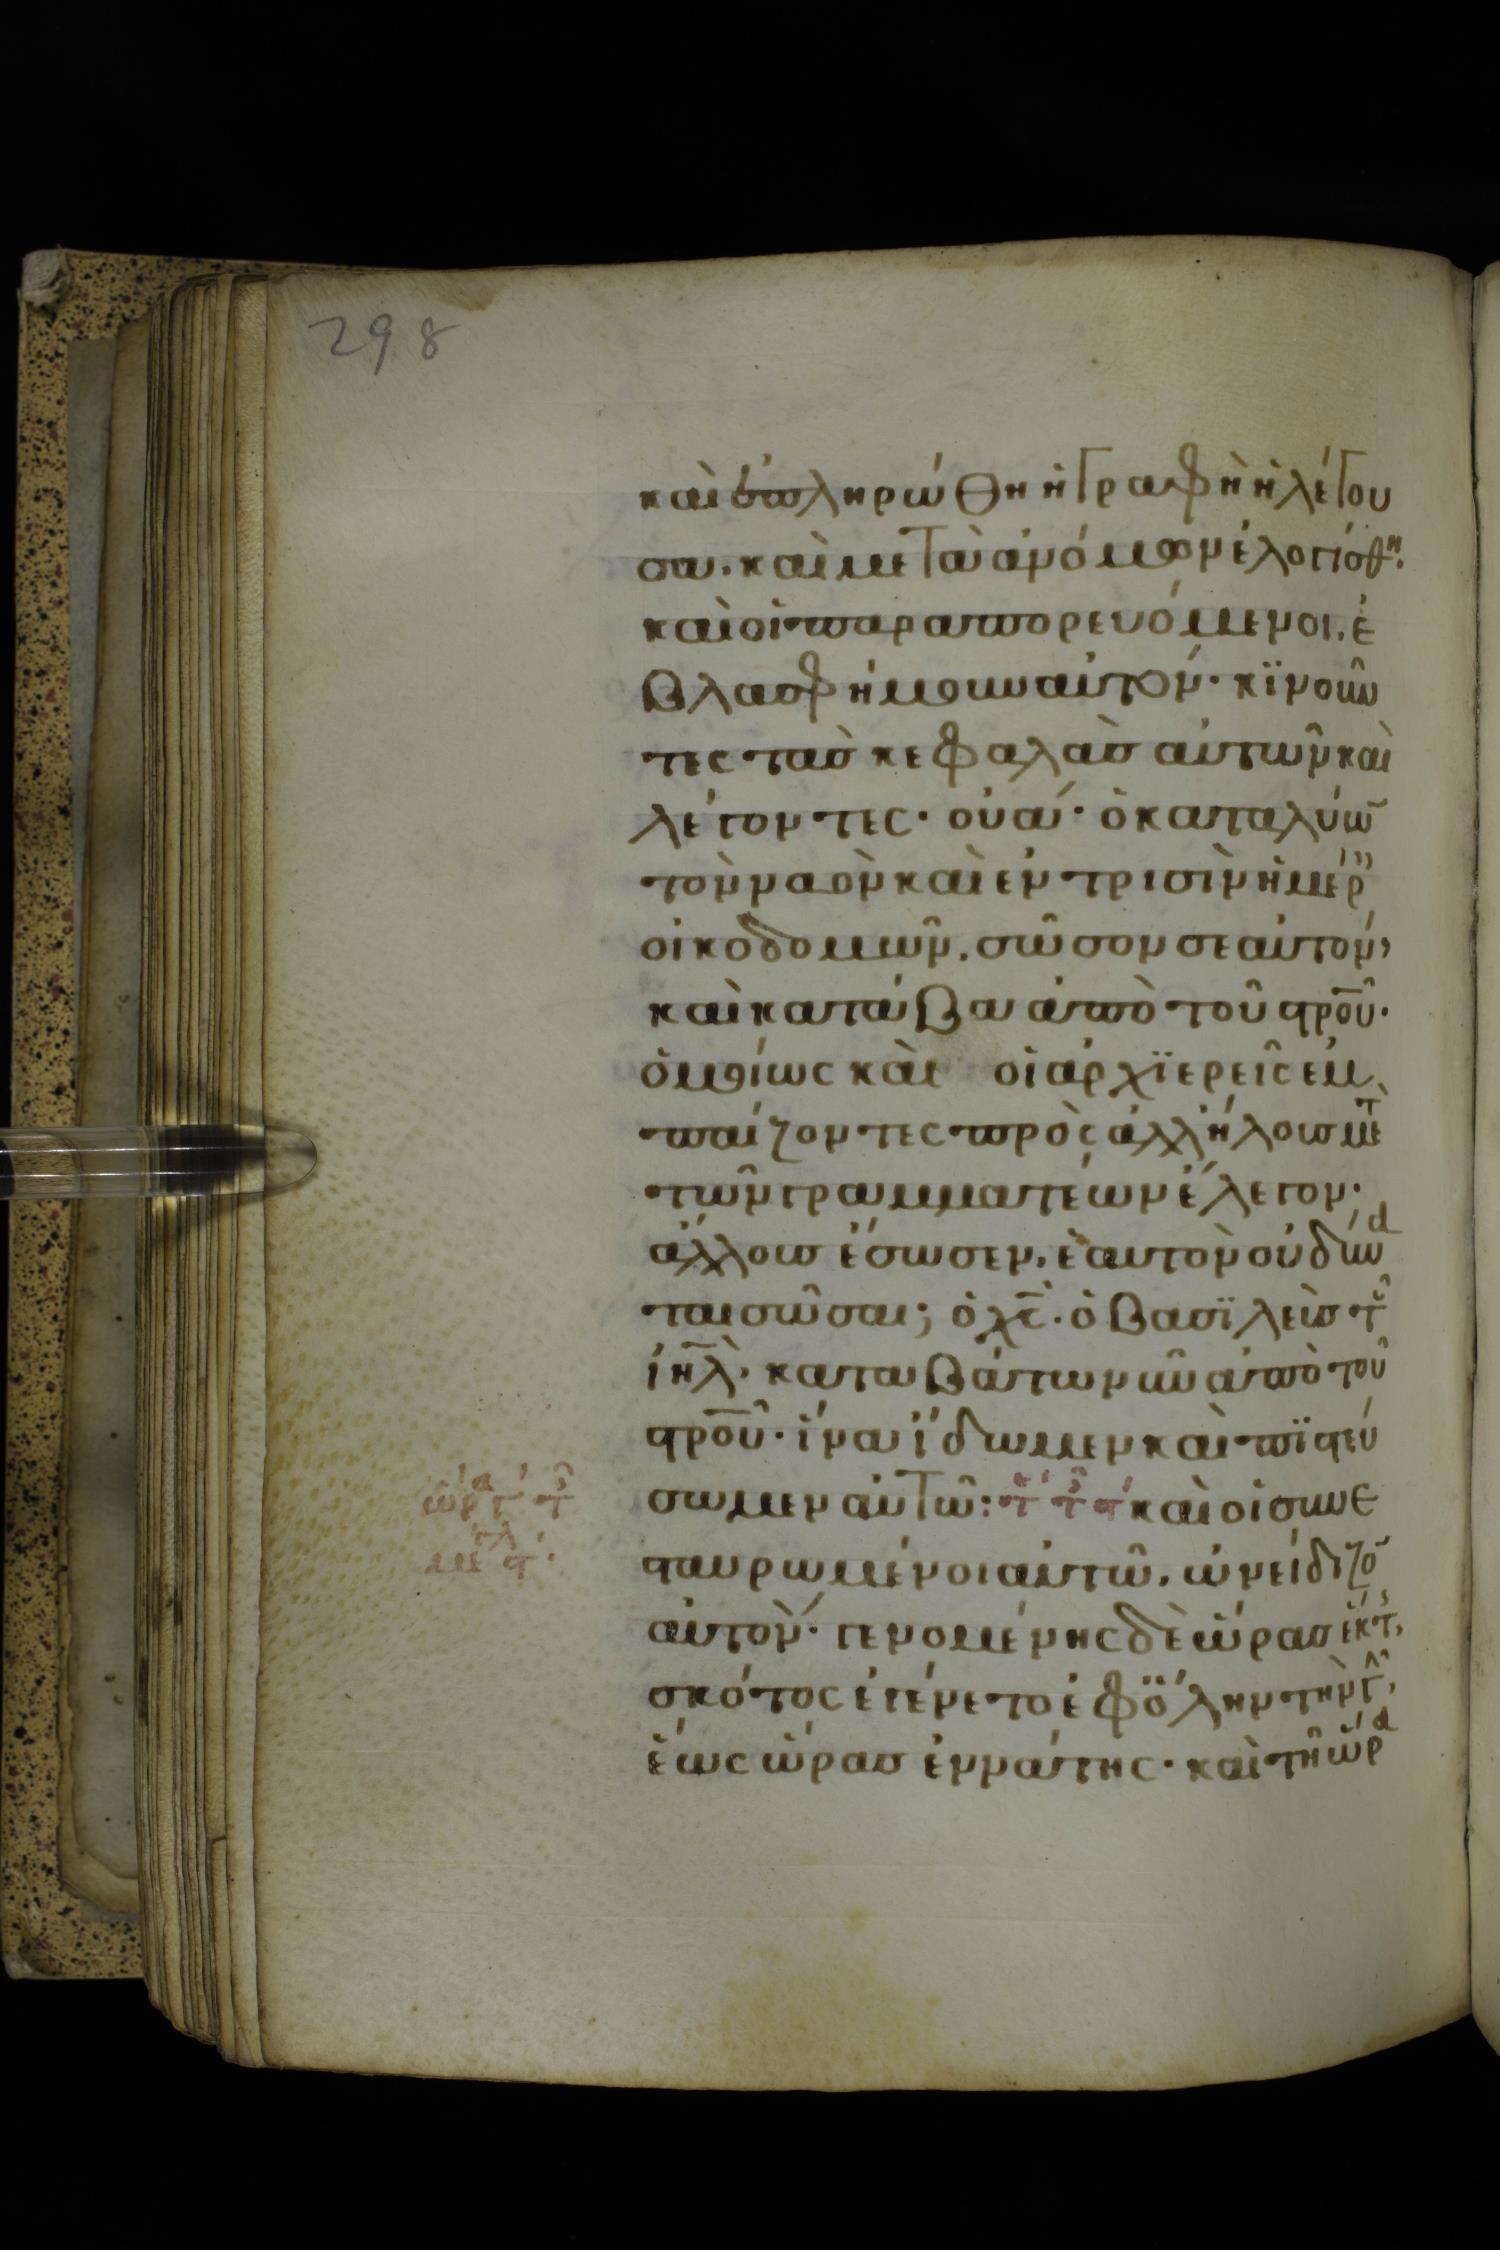 298
καὶ ἐπληρώθη ἡ γραφὴ ἡ λέγου
σα. καὶ μετὰ ἀνόμων ἐλογίσθη.
καὶ οἱ παραπορευόμενοι, ἐ
βλασφήμουν αὐτόν· κϊνοῦν
τες τὰς κεφαλὰς αὐτῶν καὶ
λέγοντες· οὐά· ὁ καταλύω̄
τὸν ναὸν καὶ ἐν τρισὶν ἡμέρ
οἰκοδομῶν. σῶσον σεαυτόν,
καὶ κατάβα ἀπὸ τοῦ σρ̅οῦ·
ὁμοίως καὶ οἱ ἀρχϊερεῖς ἐμ
παίζοντες πρὸς ἀλλήλους μετ
τῶν γραμματέων ἔλεγον·
ἄλλους ἔσωσεν, ἑαυτὸν οὐ δύνα
ται σῶσαι; ὁ χς̅· ὁ βασϊλεὺς τοῦ
ιηλ̅· καταβάτω νῦν ἀπὸ τοῦ
σρ̅οῦ· ἵνα ἴδωμεν καὶ πϊστεύ
σωμεν αὐτῶ: καὶ οἱ συνε
σταυρωμένοι αὐτῶ, ὠνείδιζο̄
αὐτόν· γενομένης δὲ ὥρας ἕκτ,
σκότος ἐγένετο ἐφ ὅλην τὴν γῆ,
ἕως ὥρας ἐννάτης· καὶ τῆ ὥρα